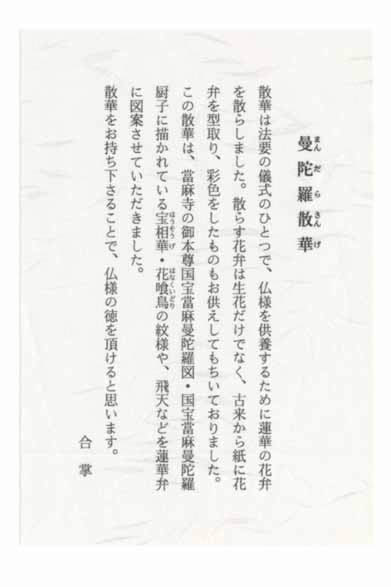 曼陀羅散華
まんだらさんげ
散華は法要の儀式のひとつで、仏様を供養するために蓮華の花弁
を散らしました。散らす花弁は生花だけでなく、古来から紙に花
弁を型取り、彩色をしたものもお供えしてもちいておりました。
この散華は、當麻寺の御本尊国宝當麻曼陀羅図・国宝當麻曼陀羅
厨子に描かれている宝相華・花喰鳥の紋様や、飛天などを蓮華弁
ほうそうげ
はなくいどり
に図案させていただきました。
散華をお持ち下さることで、仏様の徳を頂けると思います。
合掌